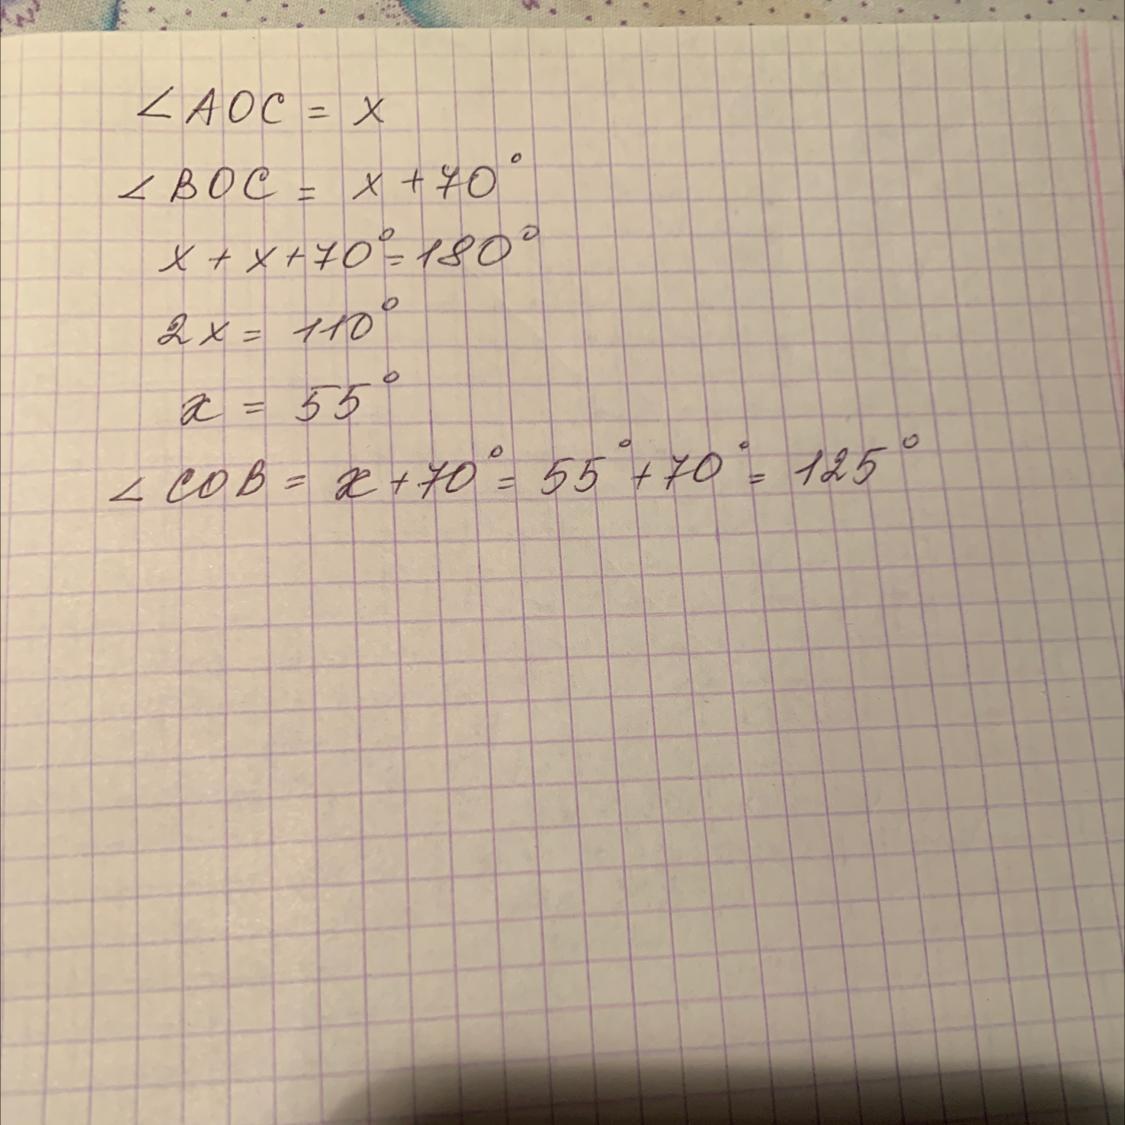 ∠AOC = x
∠BOC = x + 70°
x + x + 70° = 180°
2x = 110°
x = 55°
∠COB = x + 70° = 55° + 70° = 125°